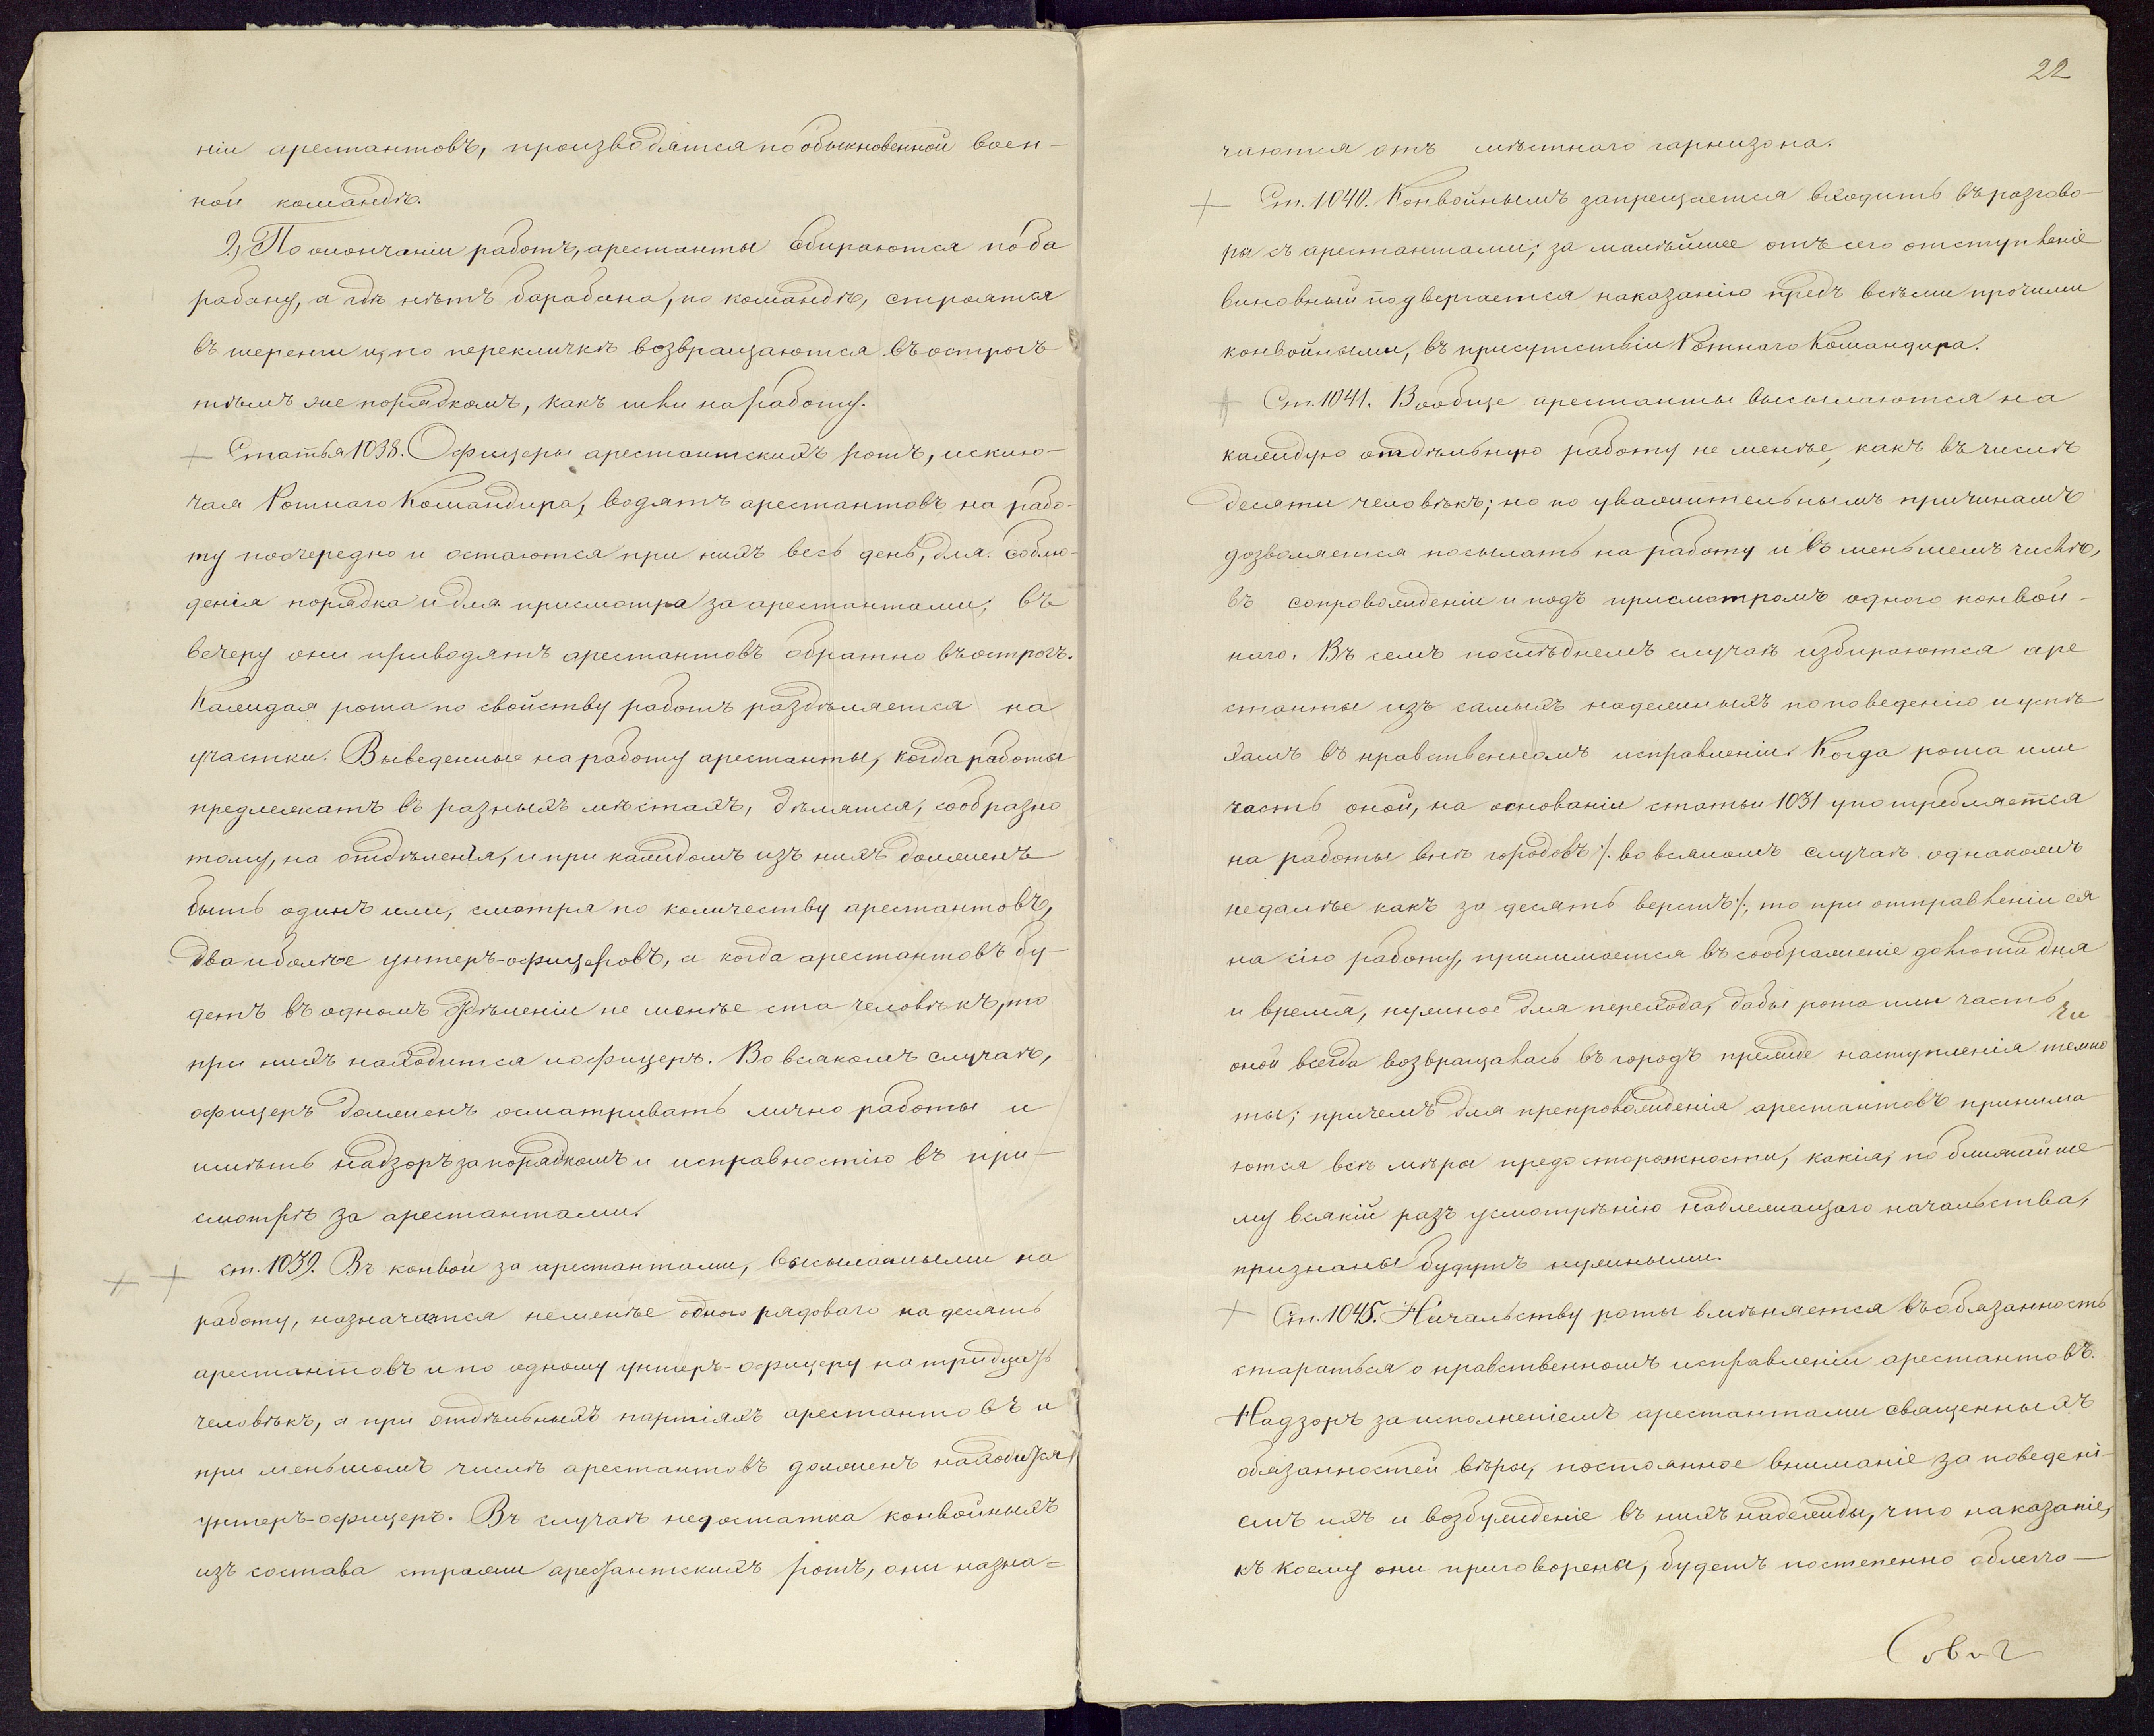 ніи арестантовъ, производятся по обыкновенной воен-
ной командѣ.
2) По окончаніи работъ, арестанты сбираются по ба
рабану, а гдѣ нѣтъ барабана, по командѣ, строятся
въ шеренги и, по перекличкѣ возвращаются въ острогъ
тѣмъ же порядкомъ, какъ шли на работу.
+ Статья 1038. Офицеры арестантскихъ ротъ, исклю-
чая Ротнаго Командира, водятъ арестантовъ на рабо-
ту поочередно и остаются при нихъ весь день, для соблю-
денія порядка и для присмотра за арестантами; въ
вечеру они приводятъ арестантовъ обратно въ острогъ.
Каждая рота по свойству работъ раздѣляется на
участки. Выведенные на работу арестанты, когда работы
предлежатъ въ разныхъ мѣстахъ, дѣлятся, сообразно
тому, на отдѣленія, и при каждомъ изъ нихъ долженъ
быть одинъ или, смотря по количеству арестантовъ,
два и болѣе унтеръ-офицеровъ, а когда арестантовъ бу-
детъ въ одномъ отдѣленіи не менѣе ста человѣкъ, то
при нихъ находится и офицеръ. Во всякомъ случаѣ,
офицеръ долженъ осматривать лично работы и
имѣть надзоръ за порядкомъ и исправностію въ при-
смотрѣ за арестантами.
+ + ст. 1039. Въ конвой за арестантами, высылаемыми на
работу, назначается неменѣе одного рядоваго на десять
арестантовъ и по одному унтеръ-офицеру на тридцать
человѣкъ, а при отдѣльныхъ партіяхъ арестантовъ и
при меньшемъ числѣ арестантовъ долженъ находиться
унтеръ-офицеръ. Въ случаѣ недостатка конвойныхъ
изъ состава стражи арестантскихъ ротъ, они назна=
22
чаются отъ мѣстнаго гарнизона.
+ Ст. 1040. Конвойнымъ запрещается входить въ разгово-
ры съ арестантами; за малѣйшее отъ сего отступленіе
виновный подвергается наказанію предъ всѣми прочими
конвойными, въ присутствіи Ротнаго Командира.
+ Ст. 1041. Вообще арестанты высылаются на
каждую отдѣльную работу не менѣе, какъ въ числѣ
десяти человѣкъ; но по уважительнымъ причинамъ
дозволяется посылать на работу и въ меньшемъ числѣ,
въ сопровожденіи и подъ присмотромъ одного конвой-
наго. Въ семъ послѣднемъ случаѣ избираются аре
станты изъ самыхъ надежныхъ по поведенію и успѣ-
хамъ въ нравственномъ исправленіи. Когда рота или
часть оной, на основаніи статьи 1031 употребляется
на работы внѣ городовъ /: во всякомъ случаѣ однакожъ
недалѣе какъ за десять верстъ:/, то при отправленіи ея
на сію работу, принимается въ соображеніе долгота дня
и время, нужное для перехода, дабы рота или часть
оной всегда возвращалась въ городъ прежде наступленія темно
ты; причемъ для препровожденія арестантовъ принима
ются всѣ мѣры предосторожности, какія, по ближайше
му всякій разъ усмотрѣнію надлежащаго начальства,
признаны будутъ нужными.
+ Ст. 1045. Начальству роты вмѣняется въ обязанность
стараться о нравственномъ исправленіи арестантовъ.
Надзоръ за исполненіемъ арестантами священныхъ
обязанностей вѣры, постоянное вниманіе за поведені-
емъ ихъ и возбужденіе въ нихъ надежды, что наказаніе,
къ коему они приговорены, будетъ постепенно облегча-